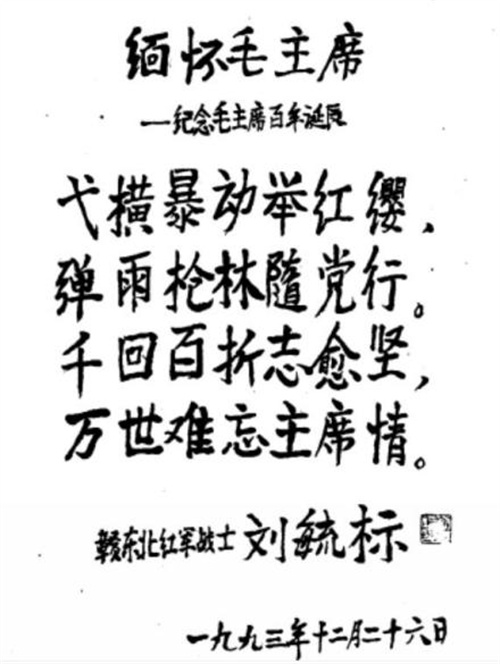 缅怀毛主席
—纪念毛主席百年诞辰
弋横暴动举红缨、
弹雨枪林随党行。
千回百折志愈坚,
万世难忘主席情。
赣东北红军战士 刘毓标
一九九三年十二月二十六日